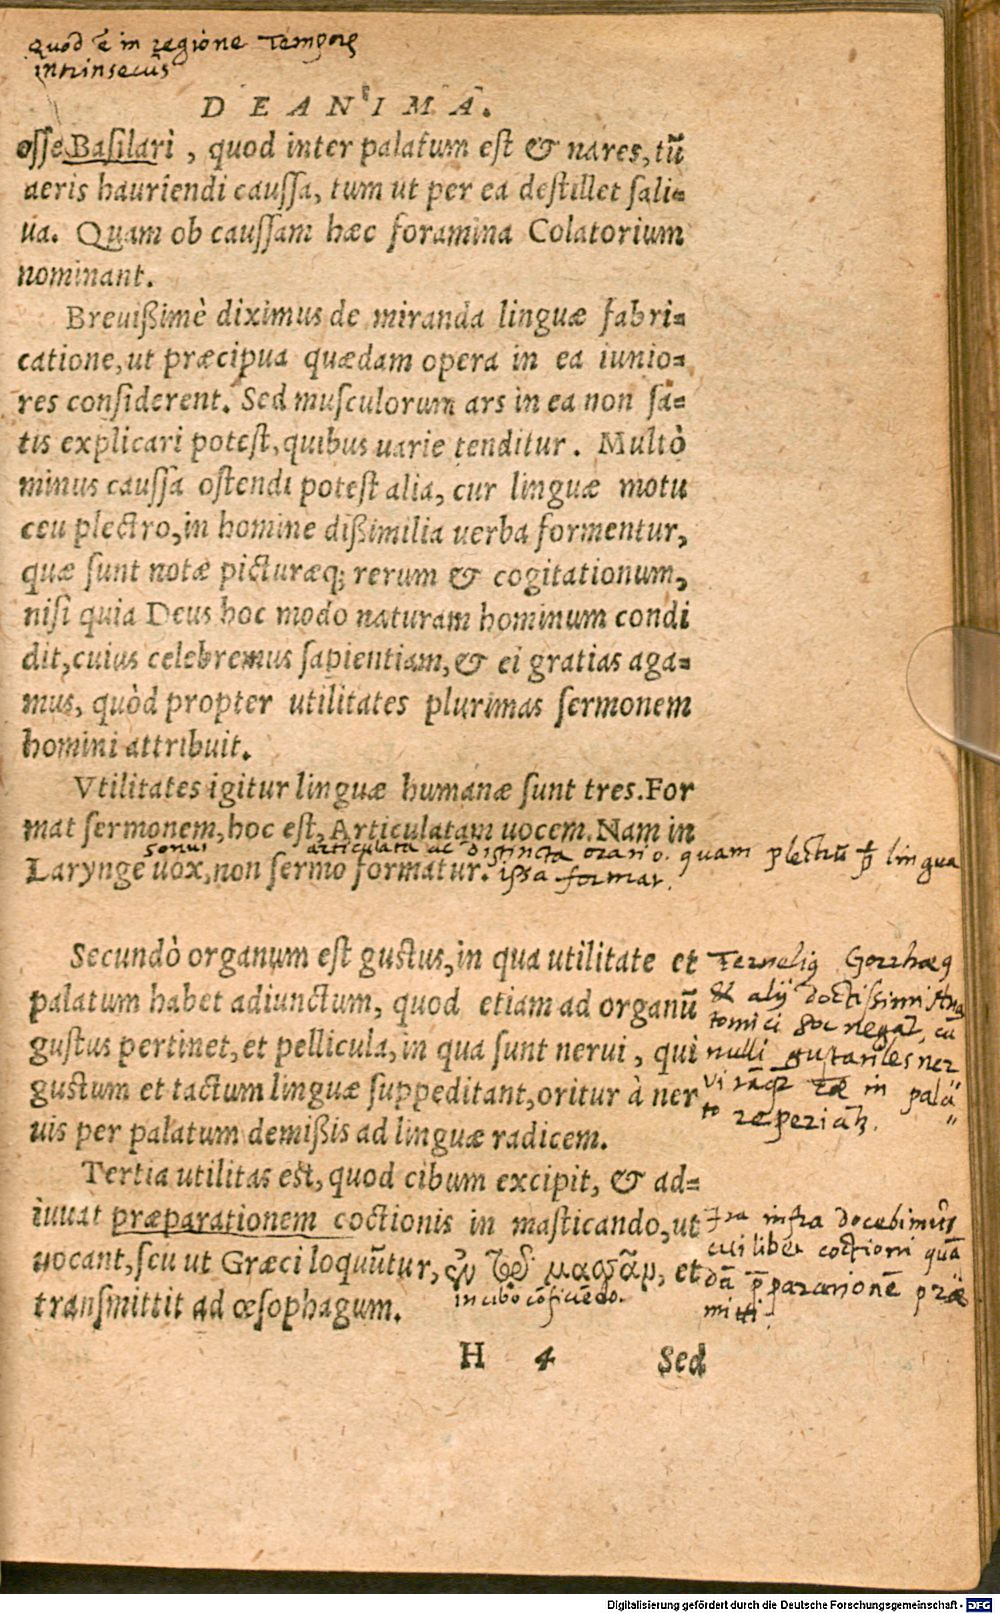 quod ē in regione Temporꝫ
intrinsecus
DE ANIMA.
osse Basilari, quod inter palatum est & nares, tū
aeris hauriendi caussa, tum ut per ea destillet sali=
ua. Quam ob caussam hæc foramina Colatorium
nominant.
Breuißimè diximus de miranda linguæ fabri=
catione, ut præcipua quædam opera in ea iunio=
res considerent. Sed musculorum ars in ea non sa=
tis explicari potest, quibus uarie tenditur. Multò
minus caussa ostendi potest alia, cur linguæ motu
ceu plectro, in homine dißimilia uerba formentur,
quæ sunt notæ picturæq; rerum & cogitationum,
nisi quia Deus hoc modo naturam hominum condi
dit, cuius celebremus sapientiam, & ei gratias aga=
mus, quòd propter utilitates plurimas sermonem
homini attribuit.
Vtilitates igitur linguæ humanæ sunt tres. For
mat sermonem, hoc est, Articulatam uocem. Nam in
sonus articulata ac distincta oratio. quam plectrū lingua
Larynge uox, non sermo formatur. ipsa format.
Secundò organum est gustus, in qua utilitate et
palatum habet adiunctum, quod etiam ad organū
gustus pertinet, et pellicula, in qua sunt nerui, qui
gustum et tactum linguæ suppeditant, oritur à ner
uis per palatum demißis ad linguæ radicem.
Fernelius Gorrhaeus
& alij doctissimi Ana
tomici hoc negāt, cū
nulli gustatiles ner
vi in pala=
to reperiātur.
Tertia utilitas est, quod cibum excipit, & ad=
iuuat præparationem coctionis in masticando, ut
uocant, seu ut Græci loquūtur, ἐν τῷ μασᾶν, et
in cibo cōficiēdo.
transmittit ad œsophagum.
Ita infra docebimus
cuilibet coctioni quā=
dā p̄parationē præ
mitti.
H 4 Sed
Digitalisierung gefördert durch die Deutsche Forschungsgemeinschaft - DFG